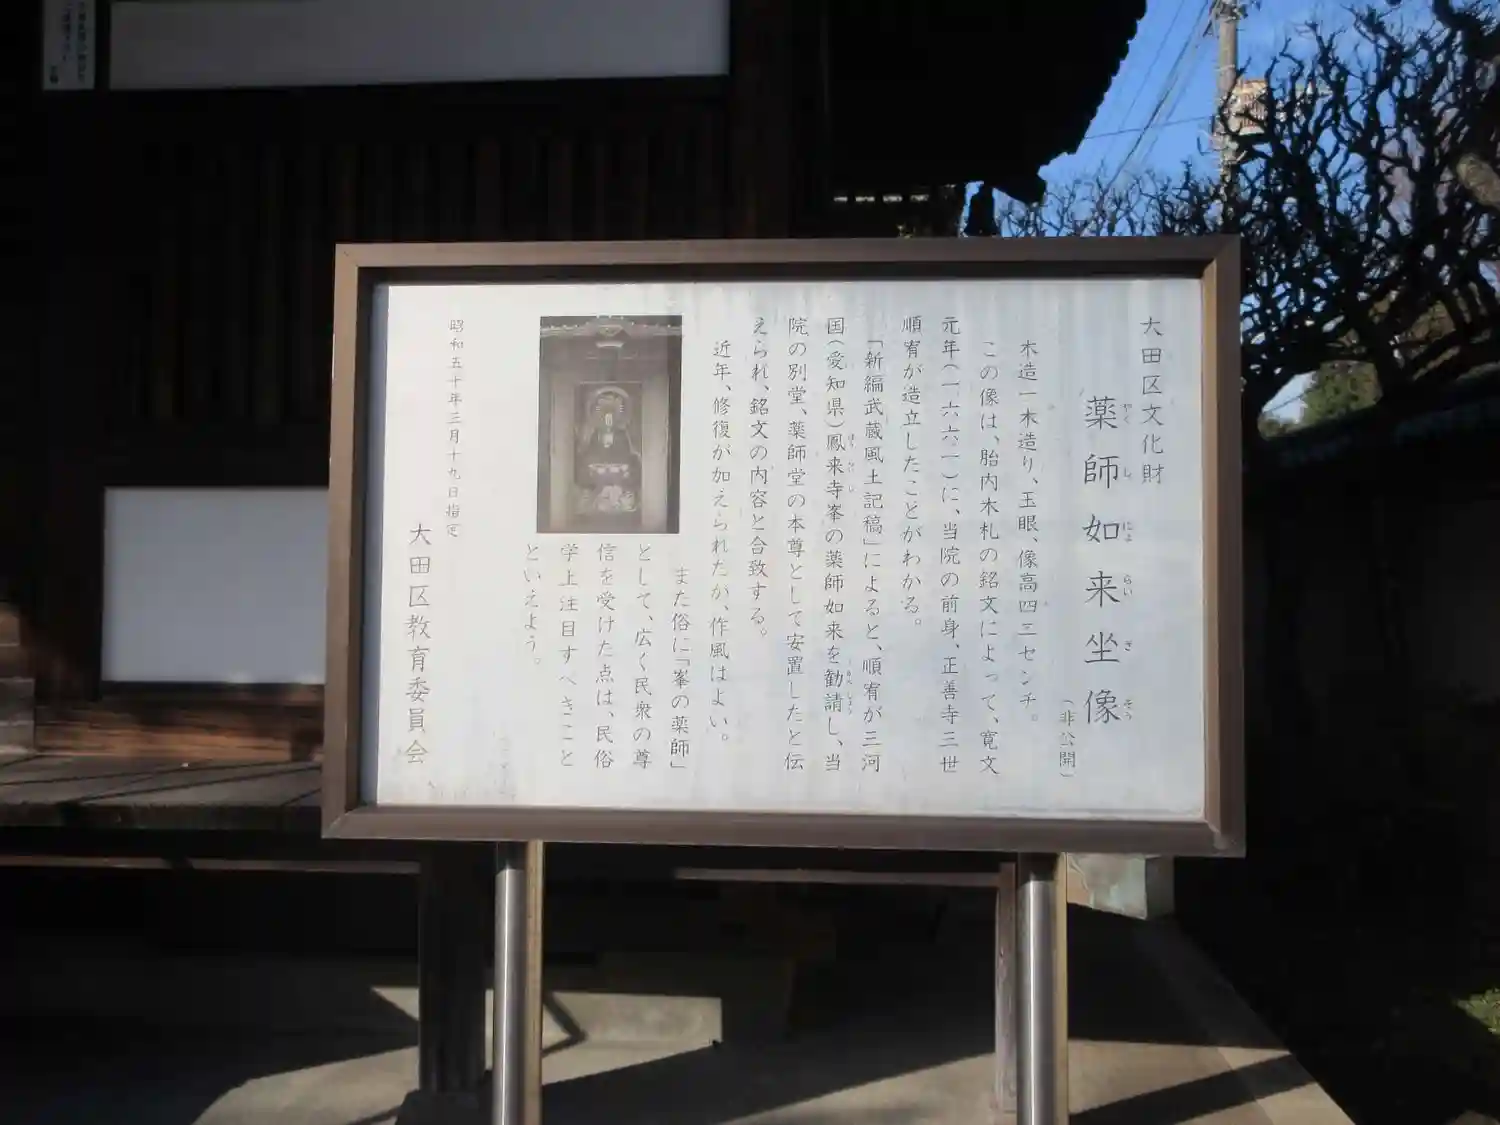 大田区文化財
薬師如来坐像
(非公開)
木造一木造り、玉眼、像高四三センチ。
この像は、胎内木札の銘文によって、寛文
元年(一六六一)に、当院の前身、正善寺三世
順宥が造立したことがわかる。
「新編武蔵風土記稿」によると、順宥が三河
国(愛知県)鳳来寺峯の薬師如来を勧請し、当
院の別堂、薬師堂の本尊として安置したと伝
えられ、銘文の内容と合致する。
近年、修復が加えられたが、作風はよい。
また俗に「峯の薬師」
として、広く民衆の尊
信を受けた点は、民俗
学上注目すべきこと
といえよう。
昭和五十年三月十九日指定
大田区教育委員会